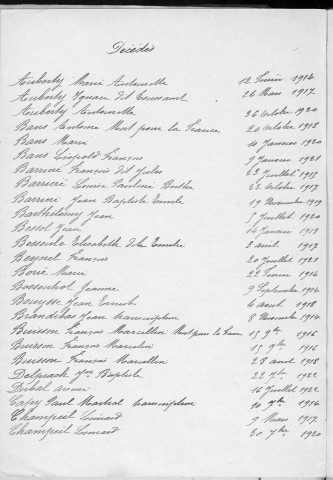 Décédés
Auberty Marie Antoinette 12 Février 1914
Auberty Ignace dit Toussaint 26 Mars 1917
Auberty Antoinette 26 Octobre 1920
Bans Antoine Mort pour la France 20 Octobre 1918
Bans Marie 10 Janvier 1920
Bans Léopold François 9 Janvier 1921
Barrière François dit Jules 23 Juillet 1915
Barrière Louise Pauline Berthe 22 Octobre 1917
Barrière Jean Baptiste 19 Novembre 1919
Barthélemy Jean 5 Juillet 1920
Bessol Jean 14 Janvier 1918
Elisabeth 3 avril 1917
Beynel François 20 Juillet 1921
Bouie Marie 22 Février 1914
Bossenhot Jeanne 9 Septembre 1914
Bouysse Jean Ernest 6 Août 1918
Jean transcription 8 Novembre 1914
Buisson François Marcellin Mort pour la France 15 9bre 1916
Buisson François Marcelin 15 9bre 1916
Buisson François Marcellin 28 avril 1918
Delpeach Jn Baptiste 22 1922
16 Juillet 1922
Gapy Paul Martial transcription 10 1914
Champeil Léonard 9 Mars 1917
Champeil Léonard 30 1920